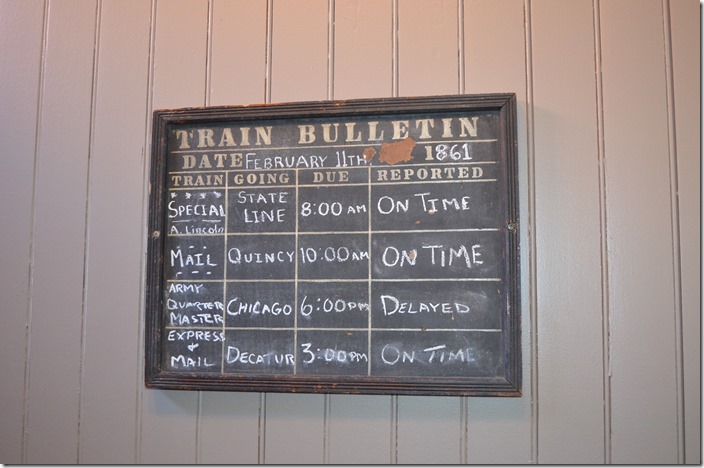 TRAIN BULLETIN
DATE FEBRUARY 11TH, 1861
TRAIN GOING DUE REPORTED
SPECIAL A. Lincoln STATE LINE 8:00 AM ON TIME
MAIL QUINCY 10:00 AM ON TIME
ARMY QUARTER MASTER CHICAGO 6:00 PM DELAYED
EXPRESS & MAIL DECATUR 3:00 PM ON TIME